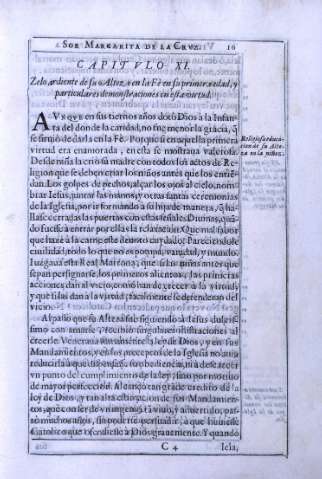 SOR MARGARITA DE LA CRVZ. 16
CAPITVLO XI.
Zelo ardiente de su Alteza en la Fè en su primer edad, y
particulares demonstraciones en esta virtud.
AVNQVE en sus tiernos años dotò Dios à la Infan-
ta del don de la caridad, no fue menor la gracia, q̃
se siruiò de darla en la Fè. Porque si en aquella primera
virtud era enamorada, en esta se mostraua valerosa.
Desde niña la criò su madre con todos los actos de Re-
ligion que se deben criar los niños antes que los entiẽ-
dan. Los golpes de pechos, alçar los ojos al cielo, nom-
brar Iesus, juntar las manos, y otras santas ceremonias
de la Iglesia, por ir formando a su hija de manera, q̃ ha-
llasse cerradas las puertas con estas señales Diuinas, quã-
do fuesse à entrar por ellas la relaxacion. Que mal sabor
que hace à la carne este deuoto cuydado: Parecio le de
ciuilidad, todo lo que no es pompa, vanidad, y mundo.
Iuzgaua esta Real Matrona, que si los niños antes que
sepan persignarse, los primeros alientos, las primicias
acciones dan al vicio, como han de crecer à la virtud,
y que si las dan a la virtud, facilmente se defenderan del
vicio.
Al passo que su Alteza fue siguiendo à Iesus dulcis-
simo con amarle, y recibiò singulares ilustraciones al
creerle. Veneraua sumamente la ley de Dios, y en sus
Mandamientos, y en los preceptos de la Iglesia no auia
reducirla à que
vn punto del cumplimiento de la ley, sino por motiuo
de mayor perfeccion. Al engo tan grande credito de la
ley de Dios, y tan alta estimacion de sus Mandamien-
tos, que con ser de vn ingenio tã viuo, y aduertido, pas-
sò muchos años, sin poderse persuadir, à que huuiesse
Catolico que ofendiesse à Dios grauemente. Y quando
C 4
Religiosa educa-
cion de su Alte-
za en la niñez.